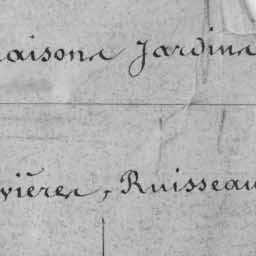 aisons Jardins
vières, Ruisseau